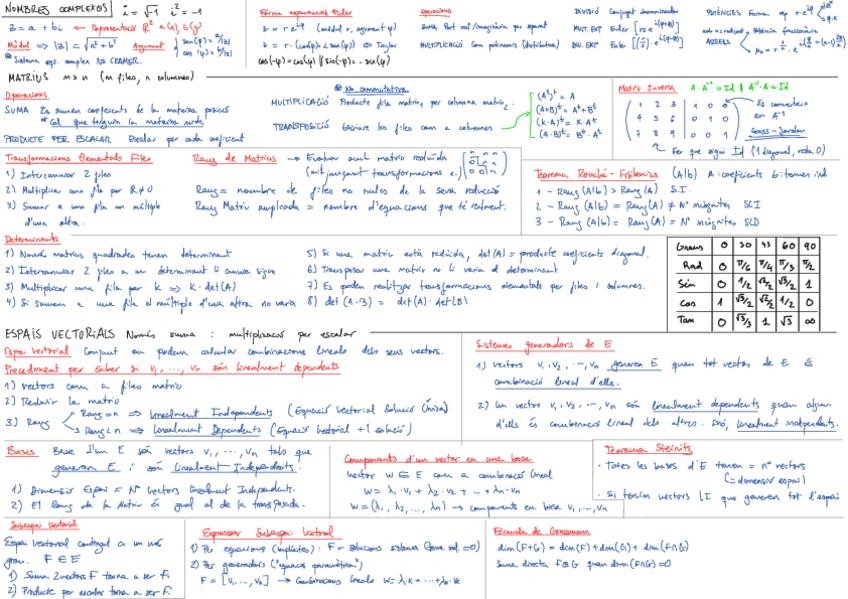 NOMBRES COMPLEXOS i = √-1 i² = -1
z = a + bi ← Representació ℝ² a(x), b(y)
Mòdul => |z| = √a²+b² Argument { sin(φ) = b/|z| cos(φ) = a/|z|
Forma exponencial Euler
z = r·e^iφ (on r del mòdul, argument φ)
z = r·(cos(φ) + i sin(φ)) Taylor
cos(-φ) = cos(φ) // sin(-φ) = -sin(φ)
Operacions
SUMA Part real/imaginària per separat
MULTIPLICACIÓ Com polinomis (distributiva)
DIVISIÓ Conjugat denominador
MULT. EXP Euler
DIV. EXP Euler
POTÈNCIES Forma exp
ARRELS
MATRIUS m x n (m files, n columnes)
Operacions
SUMA Es sumen coeficients de la mateixa posició
* Cal que tinguin la mateixa mida
PRODUCTE PER ESCALAR Escalar per cada coeficient
No commutativa
MULTIPLICACIÓ Producte fila matriu₁ per columna matriu₂
TRANSPOSICIÓ Escriure les files com a columnes
(Aᵗ)ᵗ = A
(A+B)ᵗ = Aᵗ+Bᵗ
(k·A)ᵗ = k·Aᵗ
(A·B)ᵗ = Bᵗ·Aᵗ
Matriu Inversa A·A⁻¹ = Id // A⁻¹·A = Id
1 2 3 | 1 0 0 Es converteix
4 5 6 | 0 1 0 en A⁻¹
7 8 9 | 0 0 1 Gauss-Jordan
Fer que sigui Id (1 diagonal, resta 0)
Transformacions Elementals Files
1) Intercanviar 2 files
2) Multiplicar una fila per k≠0
3) Sumar a una fila un múltiple
d'una altra.
Rang de Matrius → Esbrinar amb matriu reduïda
(mitjançant transformacions e.)
Rang = nombre de files no nules de la seva reducció
Rang Matriu ampliada = nombre d'equacions que té realment.
Teorema Rouché-Fröbenius (A|b) A: coeficients b: termes ind
1 - Rang (A|b) > Rang(A) S.I.
2 - Rang (A|b) = Rang(A) ≠ Nº incògnites SCI
3 - Rang (A|b) = Rang(A) = Nº incògnites SCD
Determinants
1) Només matrius quadrades tenen determinant
2) Intercanviar 2 files a un determinant li canvia signe
3) Multiplicar una fila per k => k·det(A)
4) Si sumem a una fila el múltiple d'una altra no varia
5) Si una matriu està reduïda, det(A) = producte coeficients diagonal.
6) Transposar una matriu no li varia el determinant
7) Es poden realitzar transformacions elementals per files i columnes.
8) det(A·B) = det(A)·det(B)
Graus 0 30 45 60 90
Rad 0 π/6 π/4 π/3 π/2
Sin 0 1/2 √2/2 √3/2 1
Cos 1 √3/2 √2/2 1/2 0
Tan 0 √3/3 1 √3 ∞
ESPAIS VECTORIALS Només suma i multiplicació per escalar
Espai vectorial Conjunt on podem calcular combinacions lineals dels seus vectors.
Procediment per saber si v₁, ..., vₙ són linealment dependents
1) Vectors com a files matriu
2) Reduir la matriu
3) Rang
Rang = n => Linealment Independents (Equació Vectorial Solució única)
Rang < n => Linealment Dependents (Equació Vectorial +1 solució)
Sistemes generadors de E
1) Vectors v₁, v₂, ..., vₙ generen E quan tot vector de E és
combinació lineal d'ells.
2) Un vector v₁, v₂, ..., vₙ són linealment dependents quan algun
d'ells és combinació lineal dels altres. Sinó, linealment independents.
Bases Base d'un E són vectors v₁, ..., vₙ tals que
generen E i són Linealment Independents.
1) Dimensió Espai = Nº vectors linealment Independents.
2) El Rang de la Matriu és igual al de la transposada.
Components d'un vector en una base
Vector w ∈ E com a combinació lineal
w = λ₁·v₁ + λ₂·v₂ + ... + λₙ·vₙ
w = (λ₁, λ₂, ..., λₙ) → components en base v₁, ..., vₙ
Teorema Steinitz
· Totes les bases d'E tenen = nº vectors
(= dimensió espai)
· Si tenim vectors LI que generen tot l'espai
Subespai Vectorial
Espai Vectorial contingut en un més
gran. F ∈ E
1) Suma 2 vectors F torna a ser F.
2) Producte per escalar torna a ser F.
Expressar Subespai Vectorial
1) Per equacions (implícites): F = solucions sistema
2) Per generadors ("equacions paramètriques")
F = [v₁, ..., vₖ] → Combinacions lineals w = λ₁·v₁ + ... + λₖ·vₖ
Fórmula de Grassmann
dim(F+G) = dim(F) + dim(G) + dim(F∩G)
Suma directa F⊕G quan dim(F∩G) = 0